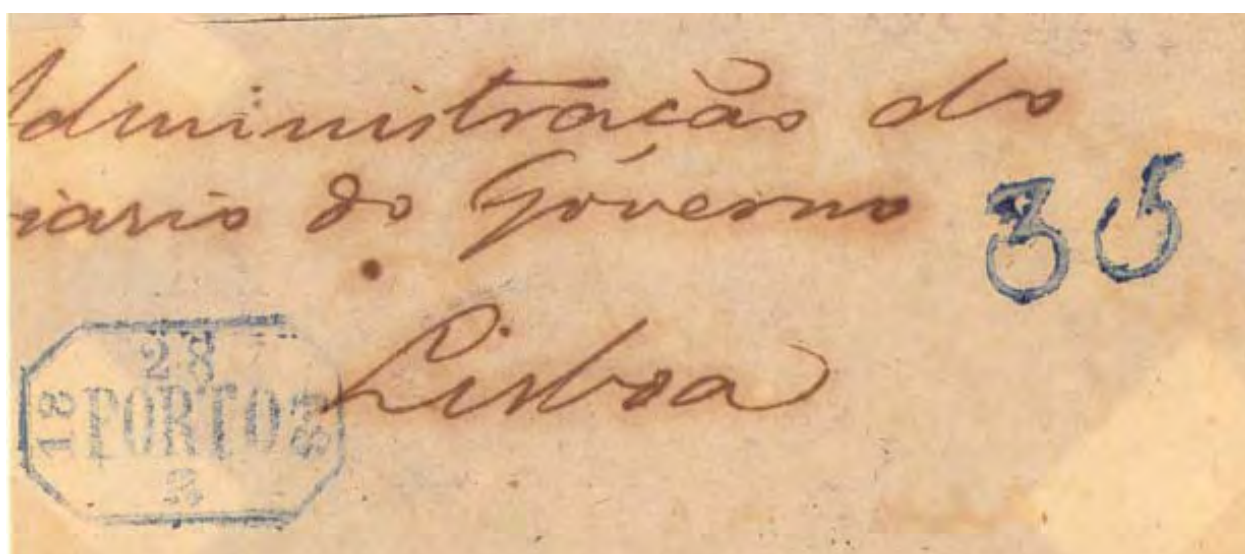 Administração do
iario do Góverno
35
Lisboa
28
18 PORTO